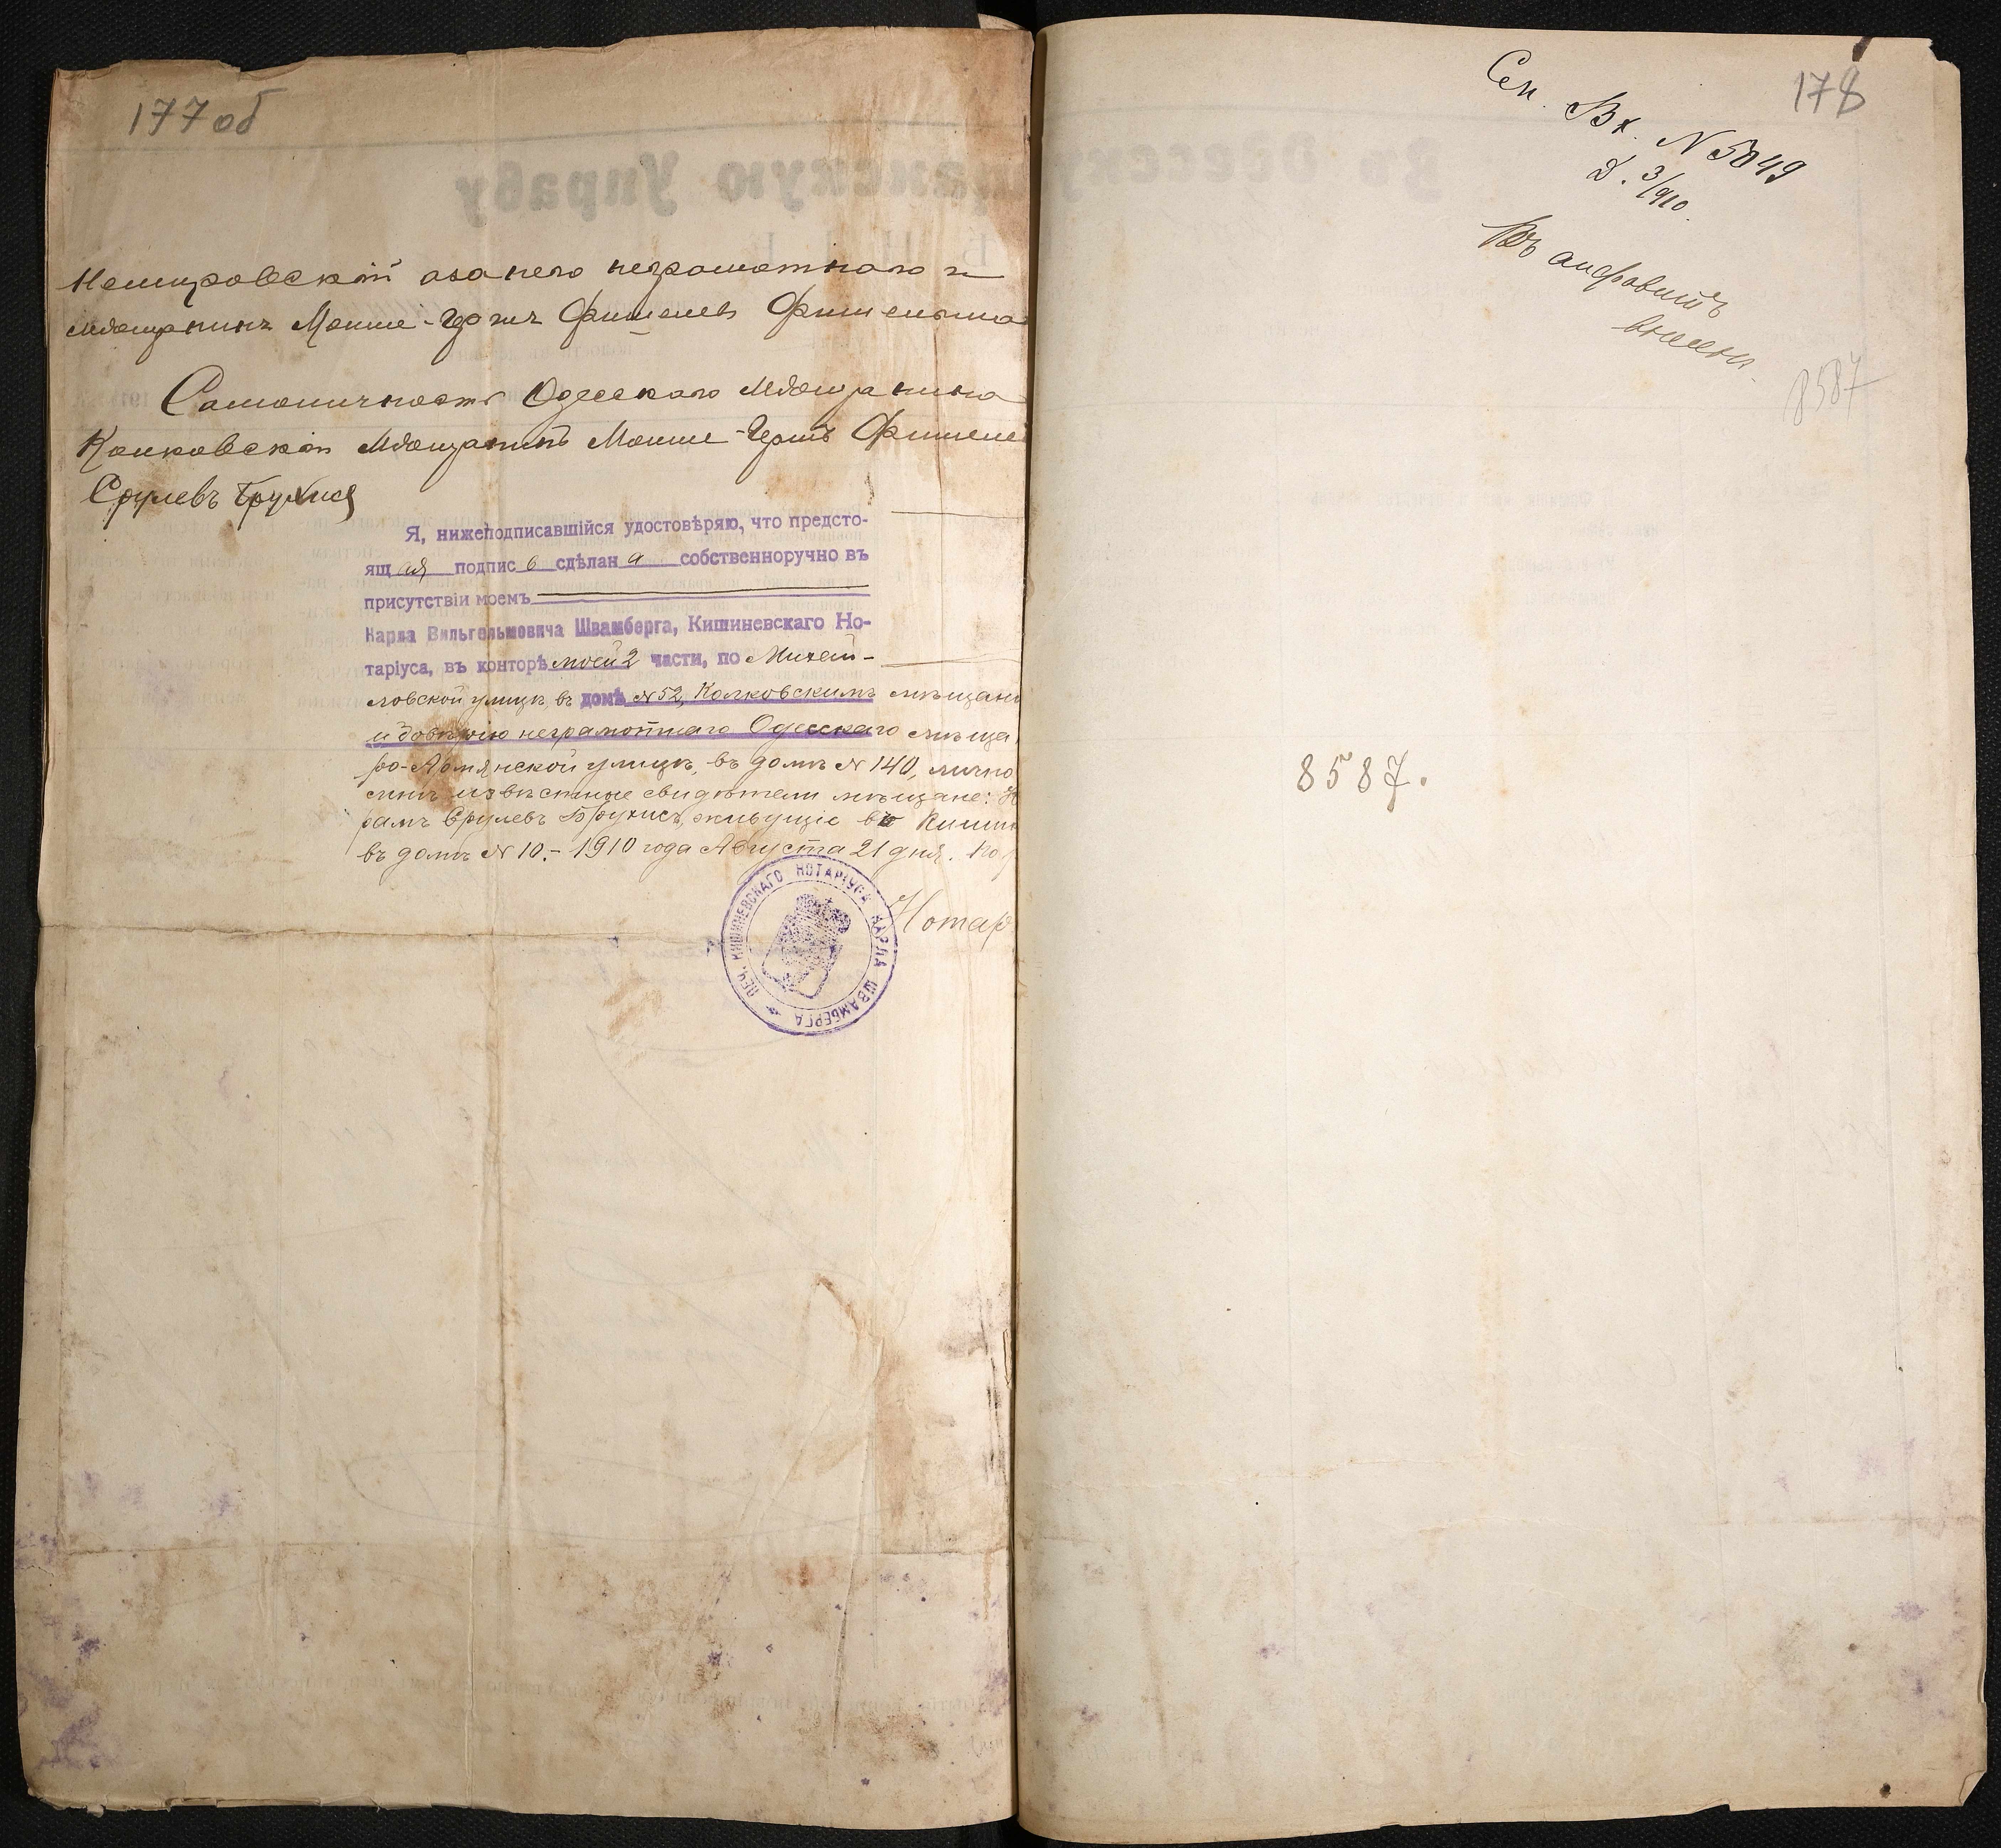 177 об
Немировскій а за него неграмотнаго и
мѣщанинъ Мошко-Герш Фишелевъ Фишельма
Самоличность Одесскаго мѣщанина
Колковскій мѣщанинъ Мошко-Гершъ Фишеле
Срулевъ Брухисъ
Я, нижеподписавшійся удостовѣряю, что предсто-
ящ ая подпис ь сдѣлан а собственноручно въ
присутствіи моемъ
Карла Вильгельмовича Швамберга, Кишиневскаго Но-
таріуса, въ конторѣ моей 2 части, по Михай-
ловской улицѣ, въ домѣ № 52, Колковскимъ мѣщани
и довѣрію неграмотнаго Одесскаго мѣща
ро-Армянской улицѣ, въ домѣ № 140, лично
мнѣ извѣстные свидѣтели мѣщане:
рамъ Срулевъ Брухисъ, живущіе въ Кишин
въ домѣ № 10.- 1910 года Августа 21 дня. По
Нотар
ПЕЧ. КИШИНЕВСКАГО НОТАРІУСА КАРЛА ШВАМБЕРГА
178
Сен. Вх. N 5849
Д. 3/910.
Въ алфавитъ
внесенъ.
8587
8587.